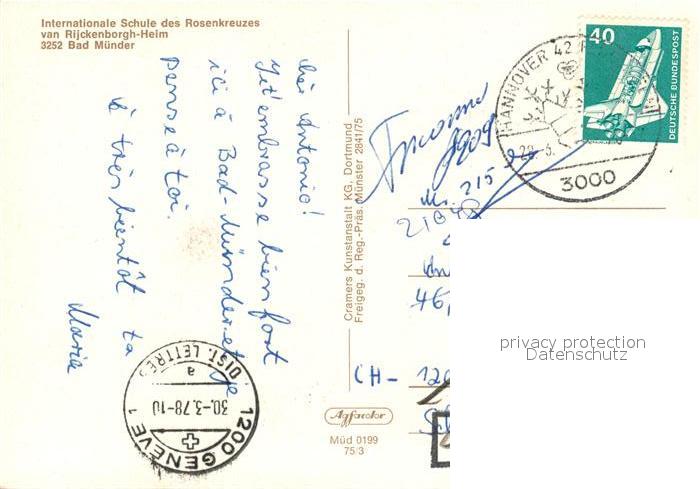 Internationale Schule des Rosenkreuzes
van Rijckenborgh-Heim
3252 Bad Münder
Antonio!
Je t'embrasse bien fort
ici à Bad-Münder et je
pense à toi.
à très bientôt ta
Maria
Cramers Kunstanstalt KG, Dortmund
Freigeg. d. Reg.-Präs. Münster 2841/75
Inconnu
46,
CH-
DIST. LETTRES
a
30.-3.78-10
1200 GENÈVE 1
Agfacolor
Müd 0199
75/3
HANNOVER 42
3000
40
DEUTSCHE BUNDESPOST
privacy protection
Datenschutz